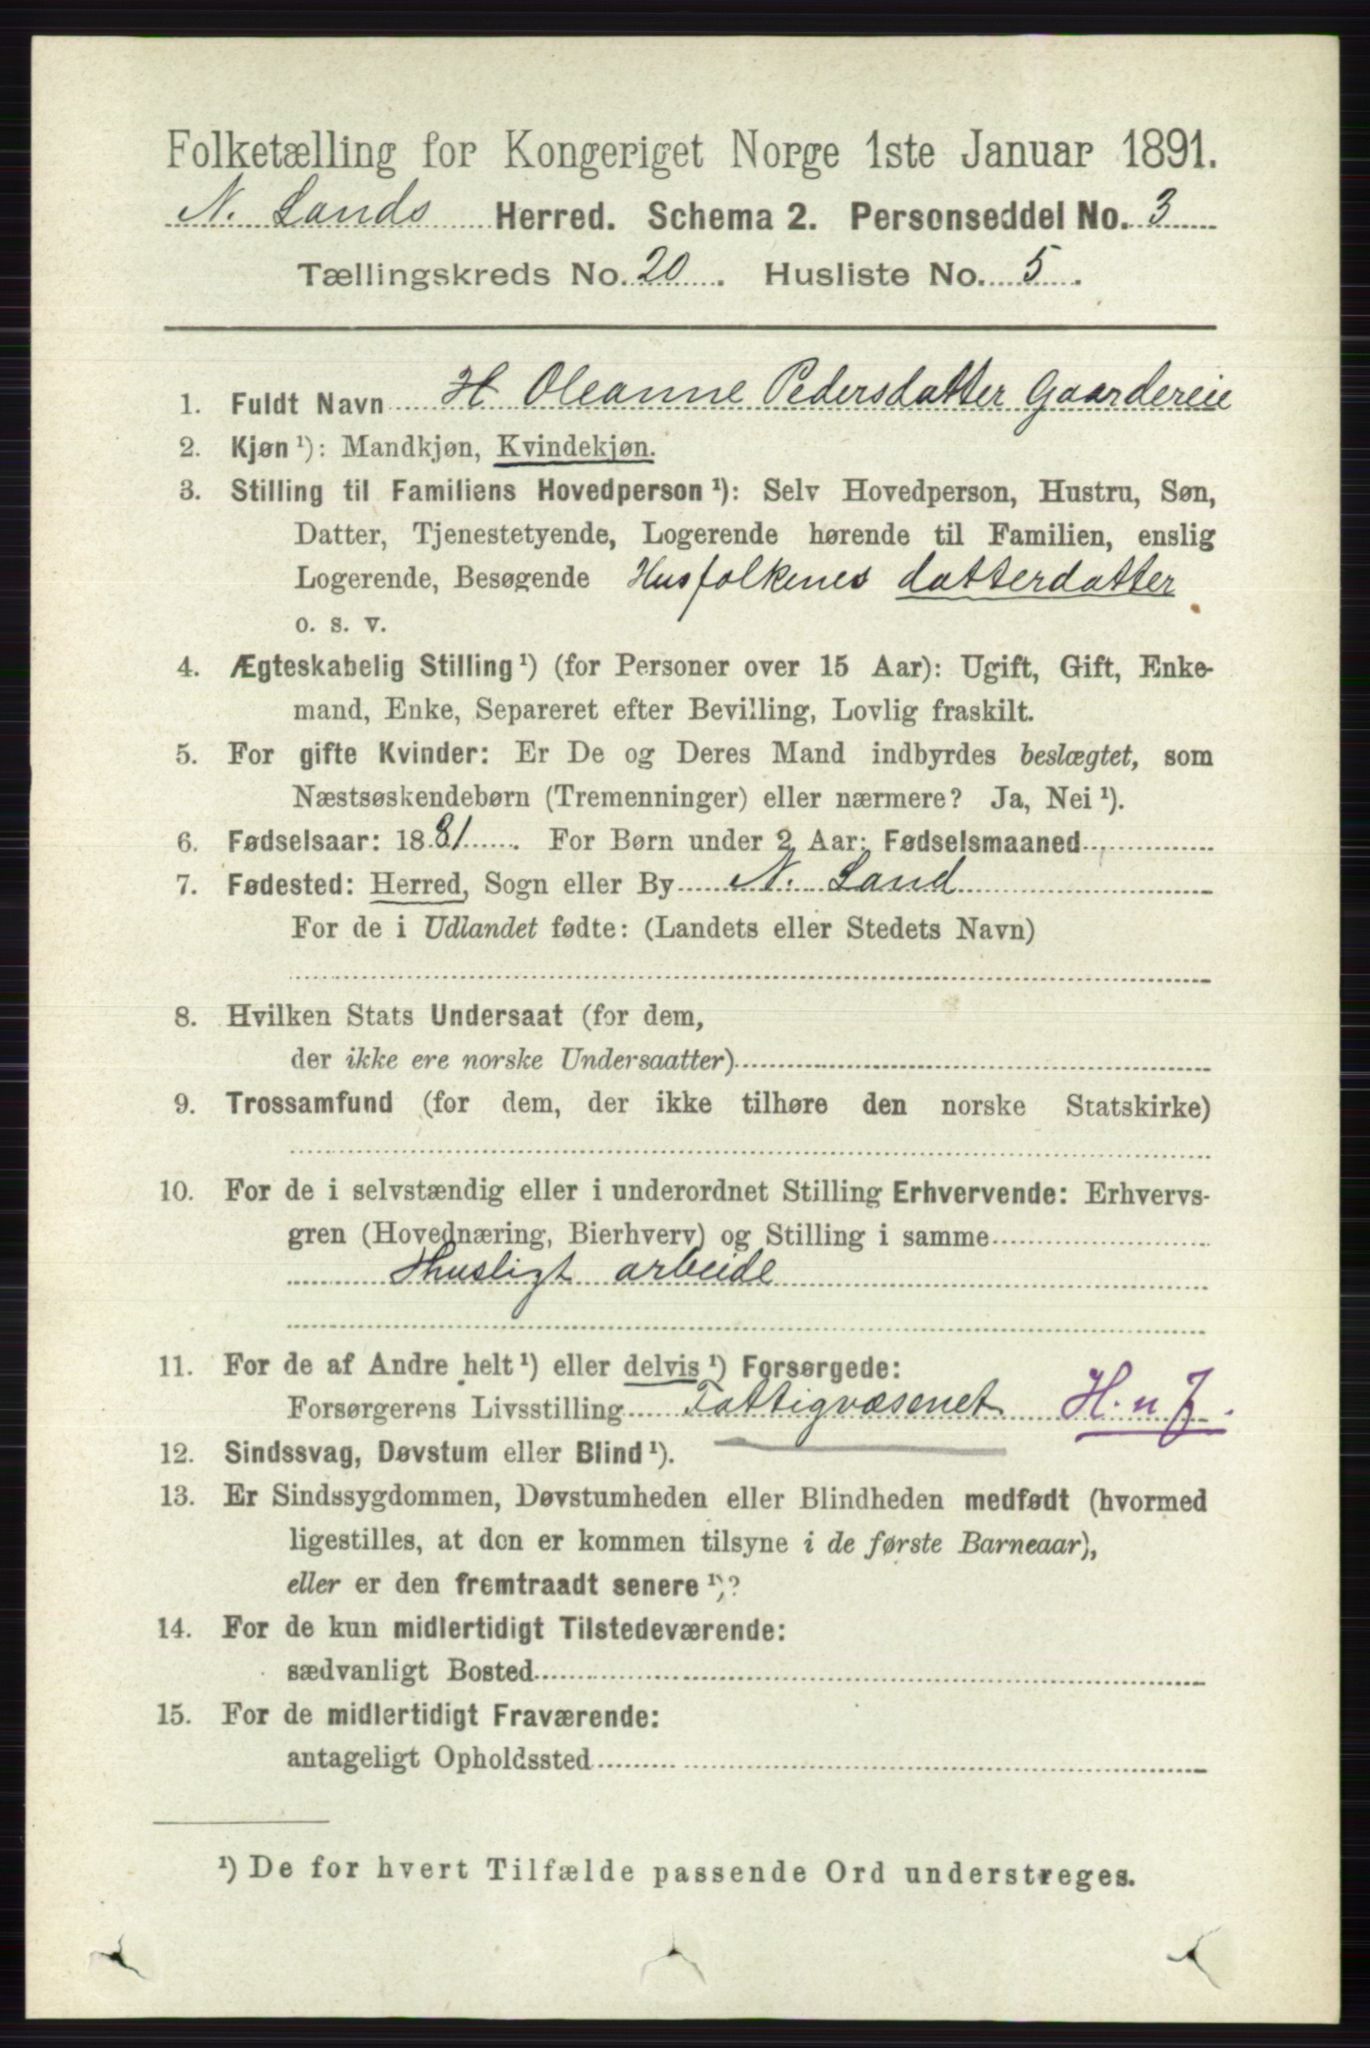 Folketælling for Kongeriget Norge 1ste Januar 1891.
N. Lands Herred. Schema 2. Personseddel No. 3
Tællingskreds No. 20. Husliste No. 5.
1. Fuldt Navn H Oleanne Pedersdatter Gaardereie
2. Kjøn ¹): Mandkjøn, Kvindekjøn.
3. Stilling til Familiens Hovedperson ¹): Selv Hovedperson, Hustru, Søn,
Datter, Tjenestetyende, Logerende hørende til Familien, enslig
Logerende, Besøgende Husfolkenes datterdatter
o. s. v.
4. Ægteskabelig Stilling ¹) (for Personer over 15 Aar): Ugift, Gift, Enke-
mand, Enke, Separeret efter Bevilling, Lovlig fraskilt.
5. For gifte Kvinder: Er De og Deres Mand indbyrdes beslægtet, som
Næstsøskendebørn (Tremenninger) eller nærmere? Ja, Nei ¹).
6. Fødselsaar: 1881. For Børn under 2 Aar: Fødselsmaaned
7. Fødested: Herred, Sogn eller By N. Land
For de i Udlandet fødte: (Landets eller Stedets Navn)
8. Hvilken Stats Undersaat (for dem,
der ikke ere norske Undersaatter)
9. Trossamfund (for dem, der ikke tilhøre den norske Statskirke)
10. For de i selvstændig eller i underordnet Stilling Erhvervende: Erhvervs-
gren (Hovednæring, Bierhverv) og Stilling i samme
Husligt arbeide
11. For de af Andre helt ¹) eller delvis ¹) Forsørgede:
Forsørgerens Livsstilling Fattigvæsenet H. u
12. Sindssvag, Døvstum eller Blind ¹).
13. Er Sindssygdommen, Døvstumheden eller Blindheden medfødt (hvormed
ligestilles, at den er kommen tilsyne i de første Barneaar),
eller er den fremtraadt senere ¹)?
14. For de kun midlertidigt Tilstedeværende:
sædvanligt Bosted
15. For de midlertidigt Fraværende:
antageligt Opholdssted
¹) De for hvert Tilfælde passende Ord understreges.